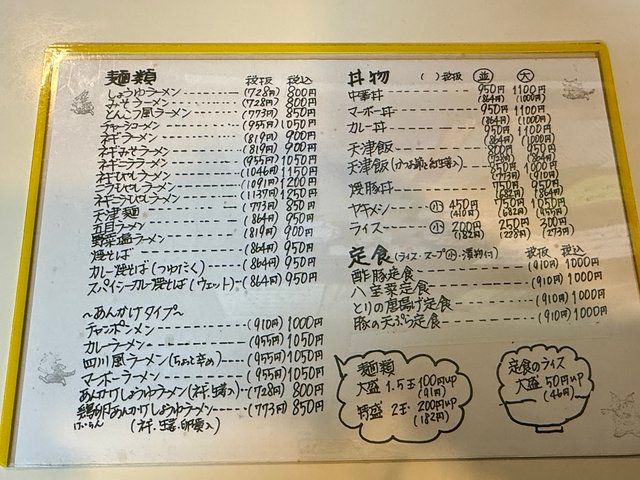 麺類 税抜 税込
しょうゆラーメン (728円) 800円
みそラーメン (728円) 800円
とんこつ風ラーメン (773円) 850円
チャーシューメン (955円) 1050円
ネギラーメン (819円) 900円
ネギみそラーメン (819円) 900円
ネギニララーメン (955円) 1050円
ネギもやしラーメン (1046円) 1150円
ニラもやしラーメン (1091円) 1200円
ネギニラもやしラーメン (1137円) 1250円
天津麺 (773円) 850円
五目ラーメン (864円) 950円
野菜塩ラーメン (819円) 900円
焼そば (864円) 950円
カレー焼そば(つゆだく) (864円) 950円
スパイシーカレー焼そば(ウェット) (864円) 950円
~あんかけタイプ~
チャンポンメン (910円) 1000円
カレーラーメン (955円) 1050円
四川風ラーメン(ちょっと辛め) (955円) 1050円
マーボーラーメン (955円) 1050円
あんかけしょうゆラーメン(ネギ、生姜入) (728円) 800円
鶏卵あんかけしょうゆラーメン (773円) 850円
けいらん (ネギ、生姜、卵黄入)
丼物 ( )税抜 並 大
中華丼 950円 1100円
(864円) (1000円)
マーボー丼 950円 1100円
(864円) (1000円)
カレー丼 950円 1100円
(864円) (1000円)
天津飯 800円 950円
(728円) (864円)
天津飯 850円 1000円
(773円) (910円)
焼豚丼 750円 950円
(682円) (864円)
ヤキメシ 小 450円 750円 1050円
(410円) (682円) (955円)
ライス 小 200円 250円 300円
(182円) (228円) (273円)
定食(ライス・スープ小・漬物付) 税抜 税込
酢豚定食 (910円) 1000円
八宝菜定食 (910円) 1000円
とりの唐揚げ定食 (910円) 1000円
豚の天ぷら定食 (910円) 1000円
麺類
大盛 1.5玉 100円up
(91円)
特盛 2玉 200円up
(182円)
定食のライス
大盛 50円up
(46円)